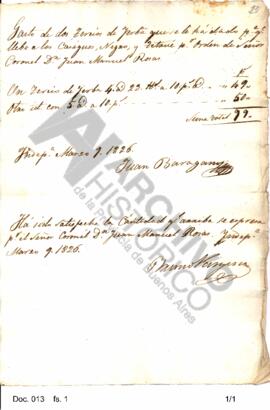 23
Gasto de dos Tercios de Yerba que se le há dado pª qº
llebe a los Casiques, Negro, y Catané pr orden de Señor
Coronel Dn Juan Manuel Rosas
Un Tercio de Yerba 4@ 22 lls a 10 ps @ 49
Otro id con 5@ a 10 ps 50
Suma total 99
Marzo 7. 1826.
Juan
Há sido satisfecha la Cantidad qe arriba se expresa
pr el Señor Coronel Dn Juan Manuel Rosas
Marzo 9. 1826.
ARCHIVO
HISTORICO
de la Provincia de Buenos Aires
Doc. 013 fs. 1
1/1